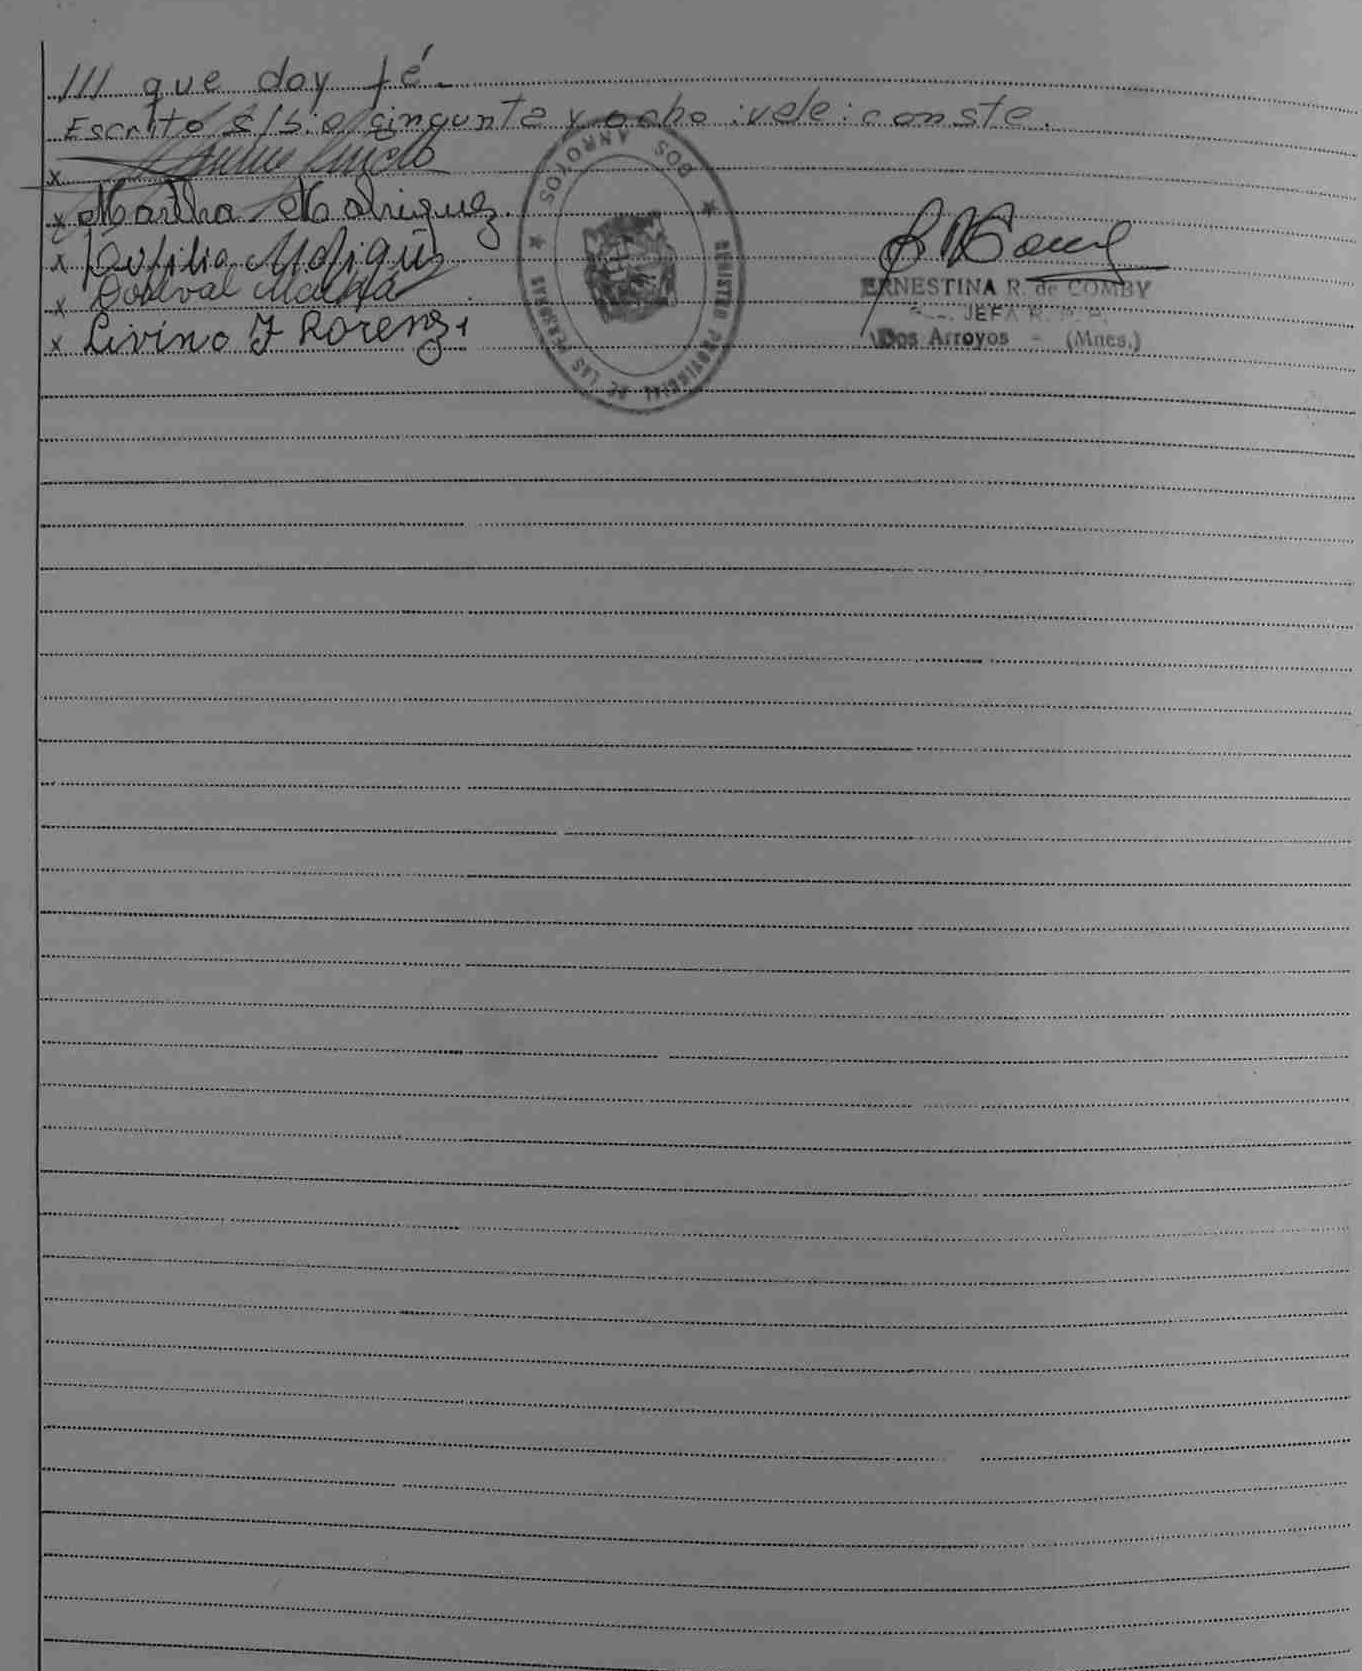 /// que doy fé.
Escrito s/b: o cincuenta y ocho: vale: conste.
x
x Martha
x
x Dorival
x Livino F Lorenzi
DOS ARROYOS
REGISTRO PROVINCIAL DE LAS PERSONAS
ERNESTINA R. de COMBY
JEFA R. P. P.
Dos Arroyos - (Mnes.)